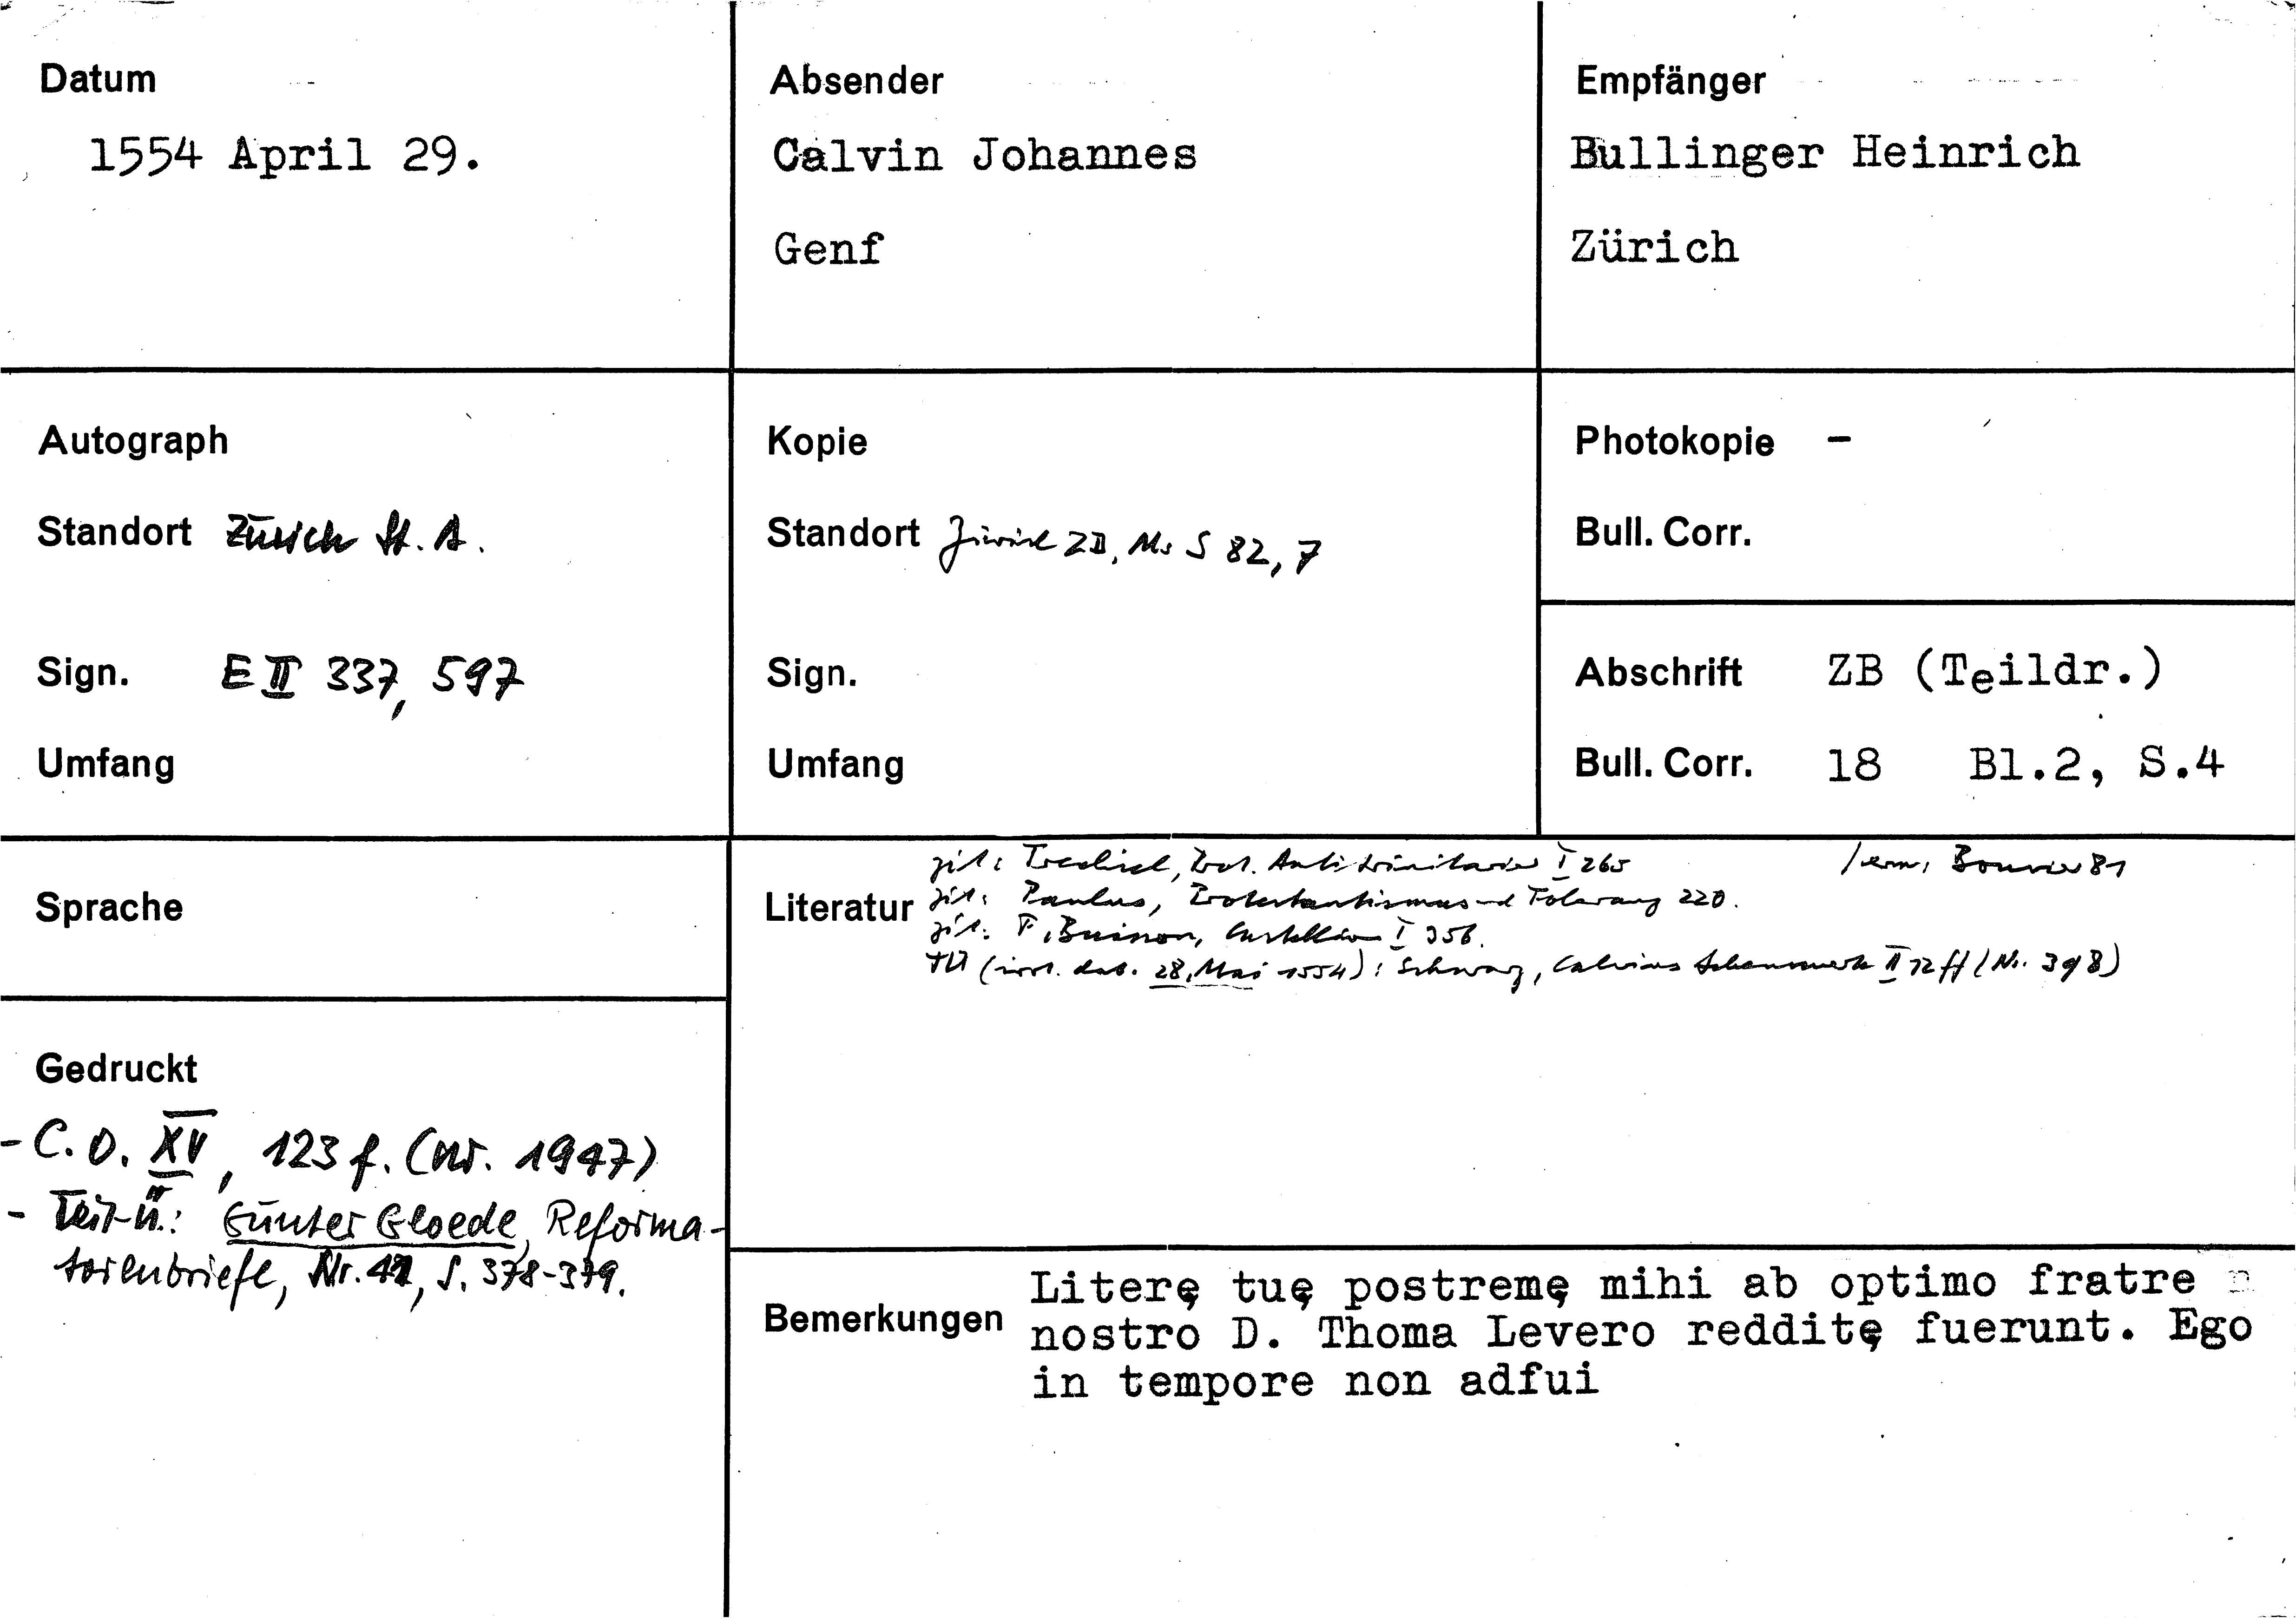 Datum
1554 April 29.
Absender
Calvin Johannes
Genf
Empfänger
Bullinger Heinrich
Zürich
Autograph
Standort Zürich St. A.
Sign. E II 337, 597
Umfang
Kopie
Standort Zürich ZB, Ms S 82, 7
Sign.
Umfang
Photokopie -
Bull. Corr.
Abschrift ZB (Teildr.)
Bull. Corr. 18 Bl.2, S.4
Sprache
Gedruckt
- C.O. XV, 123 f. (Nr. 1947)
- Teil-Ü.: Günter Gloede, Reforma-
torenbriefe, Nr. 42, S. 378-379.
Literatur
zit: Trechsel, Prot. Antitrinitarier I 265 /erw: Bouvier 81
zit: Paulus, Protestantismus und Toleranz 220.
zit: F. Buisson, Castellion I 356.
TÜ (irrt. dat. 28. Mai 1554): Schwarz, Calvins Lebenswerk II 72 ff (Nr. 398)
Bemerkungen
Literę tuę postremę mihi ab optimo fratre n
nostro D. Thoma Levero redditę fuerunt. Ego
in tempore non adfui